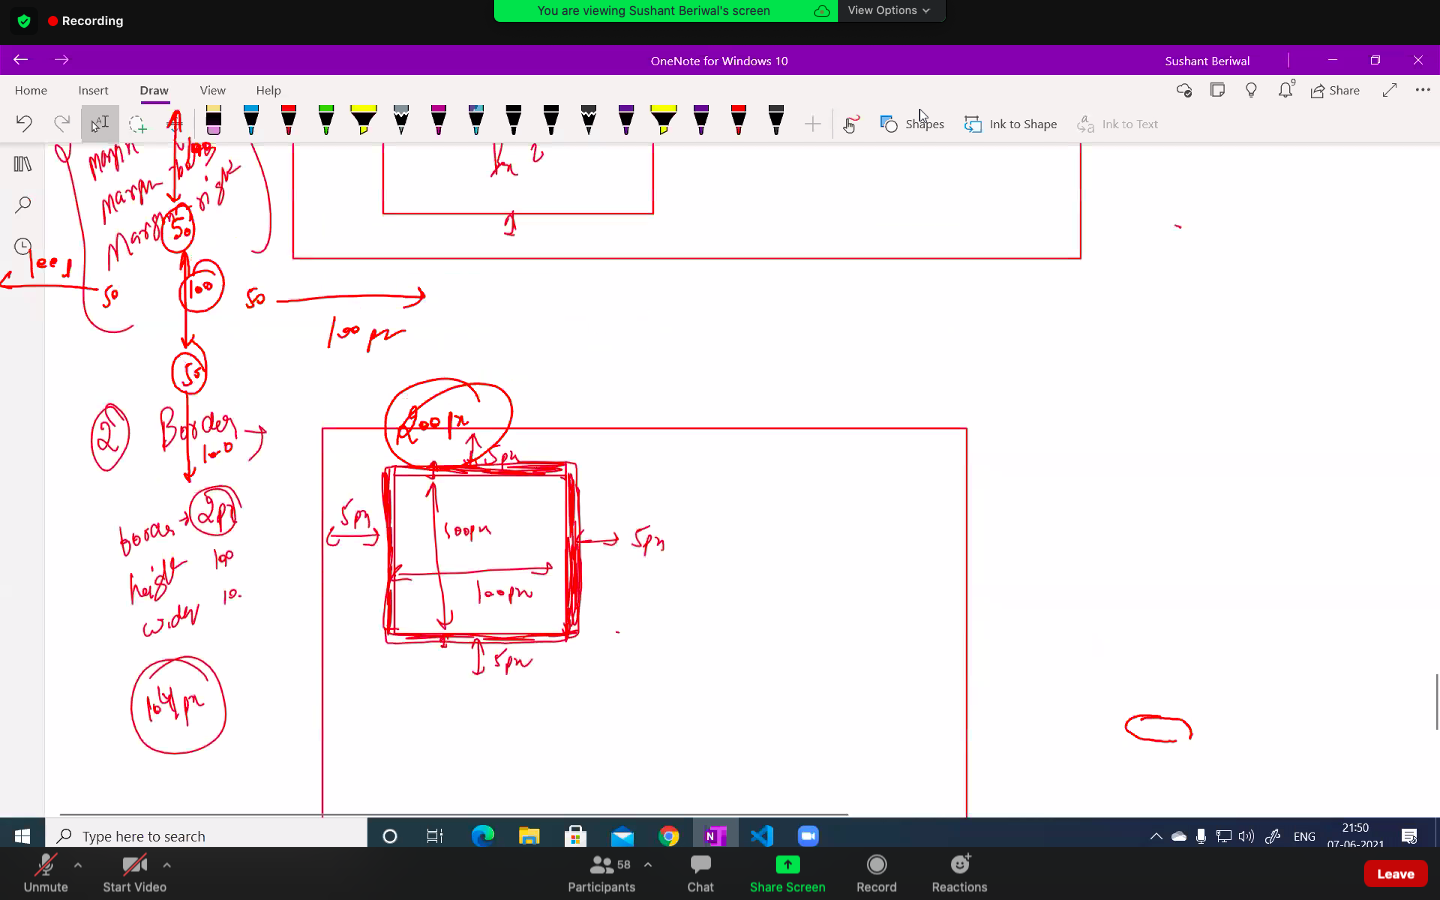 Recording
You are viewing Sushant Beriwal's screen
View Options
OneNote for Windows 10
Sushant Beriwal
Home
Insert
Draw
View
Help
9
Share
Shapes
Ink to Shape
Ink to Text
margin
margin
margin-right
50
50
100
50
100px
50
200px
2
Border
100
5px
5px
100px
5px
100px
5px
border 2px
height 100
104px
Type here to search
ENG
21:50
07-06-2021
Unmute
Start Video
58
Participants
Chat
Share Screen
Record
Reactions
Leave